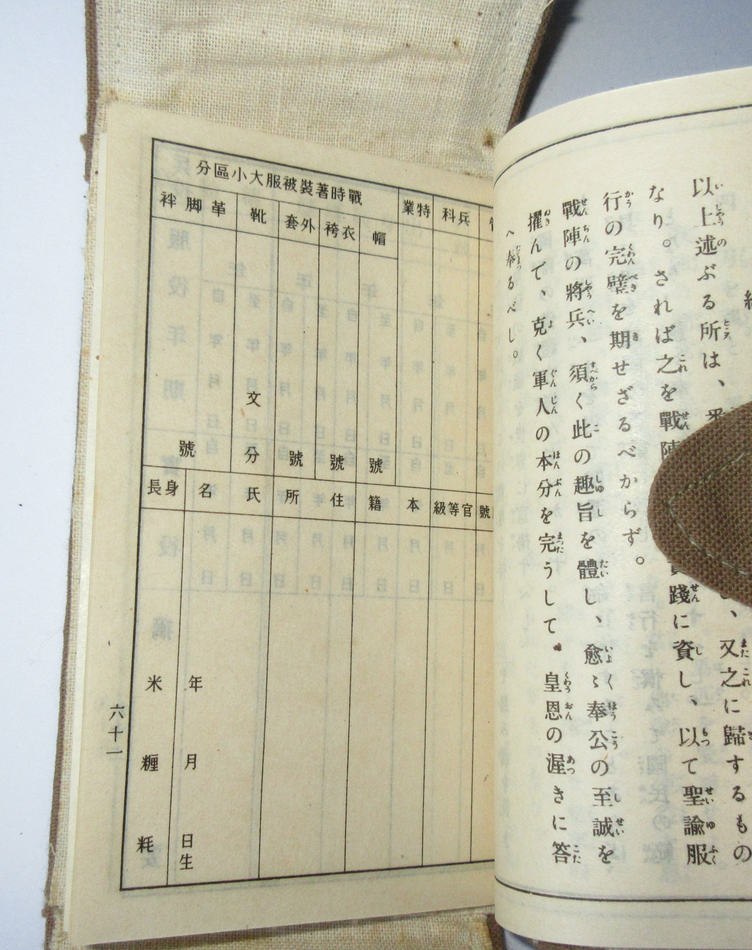 以上述ぶる所は、
なり。されば之を戰陣
踐に資し、以て聖諭服
、又之に歸するもの
行の完璧を期せざるべからず。
戰陣の將兵、須く此の趣旨を體し、愈〻奉公の至誠を
擢んで、克く軍人の本分を完うして、皇恩の渥きに答
へ奉るべし。
戰時著裝被服大小區分
特業
兵科
帽
衣袴
外套
靴
革脚絆
號
號
號
文
分
號
號
官等級
本籍
住所
氏名
身長
年
月
日生
米
糎
粍
六十一